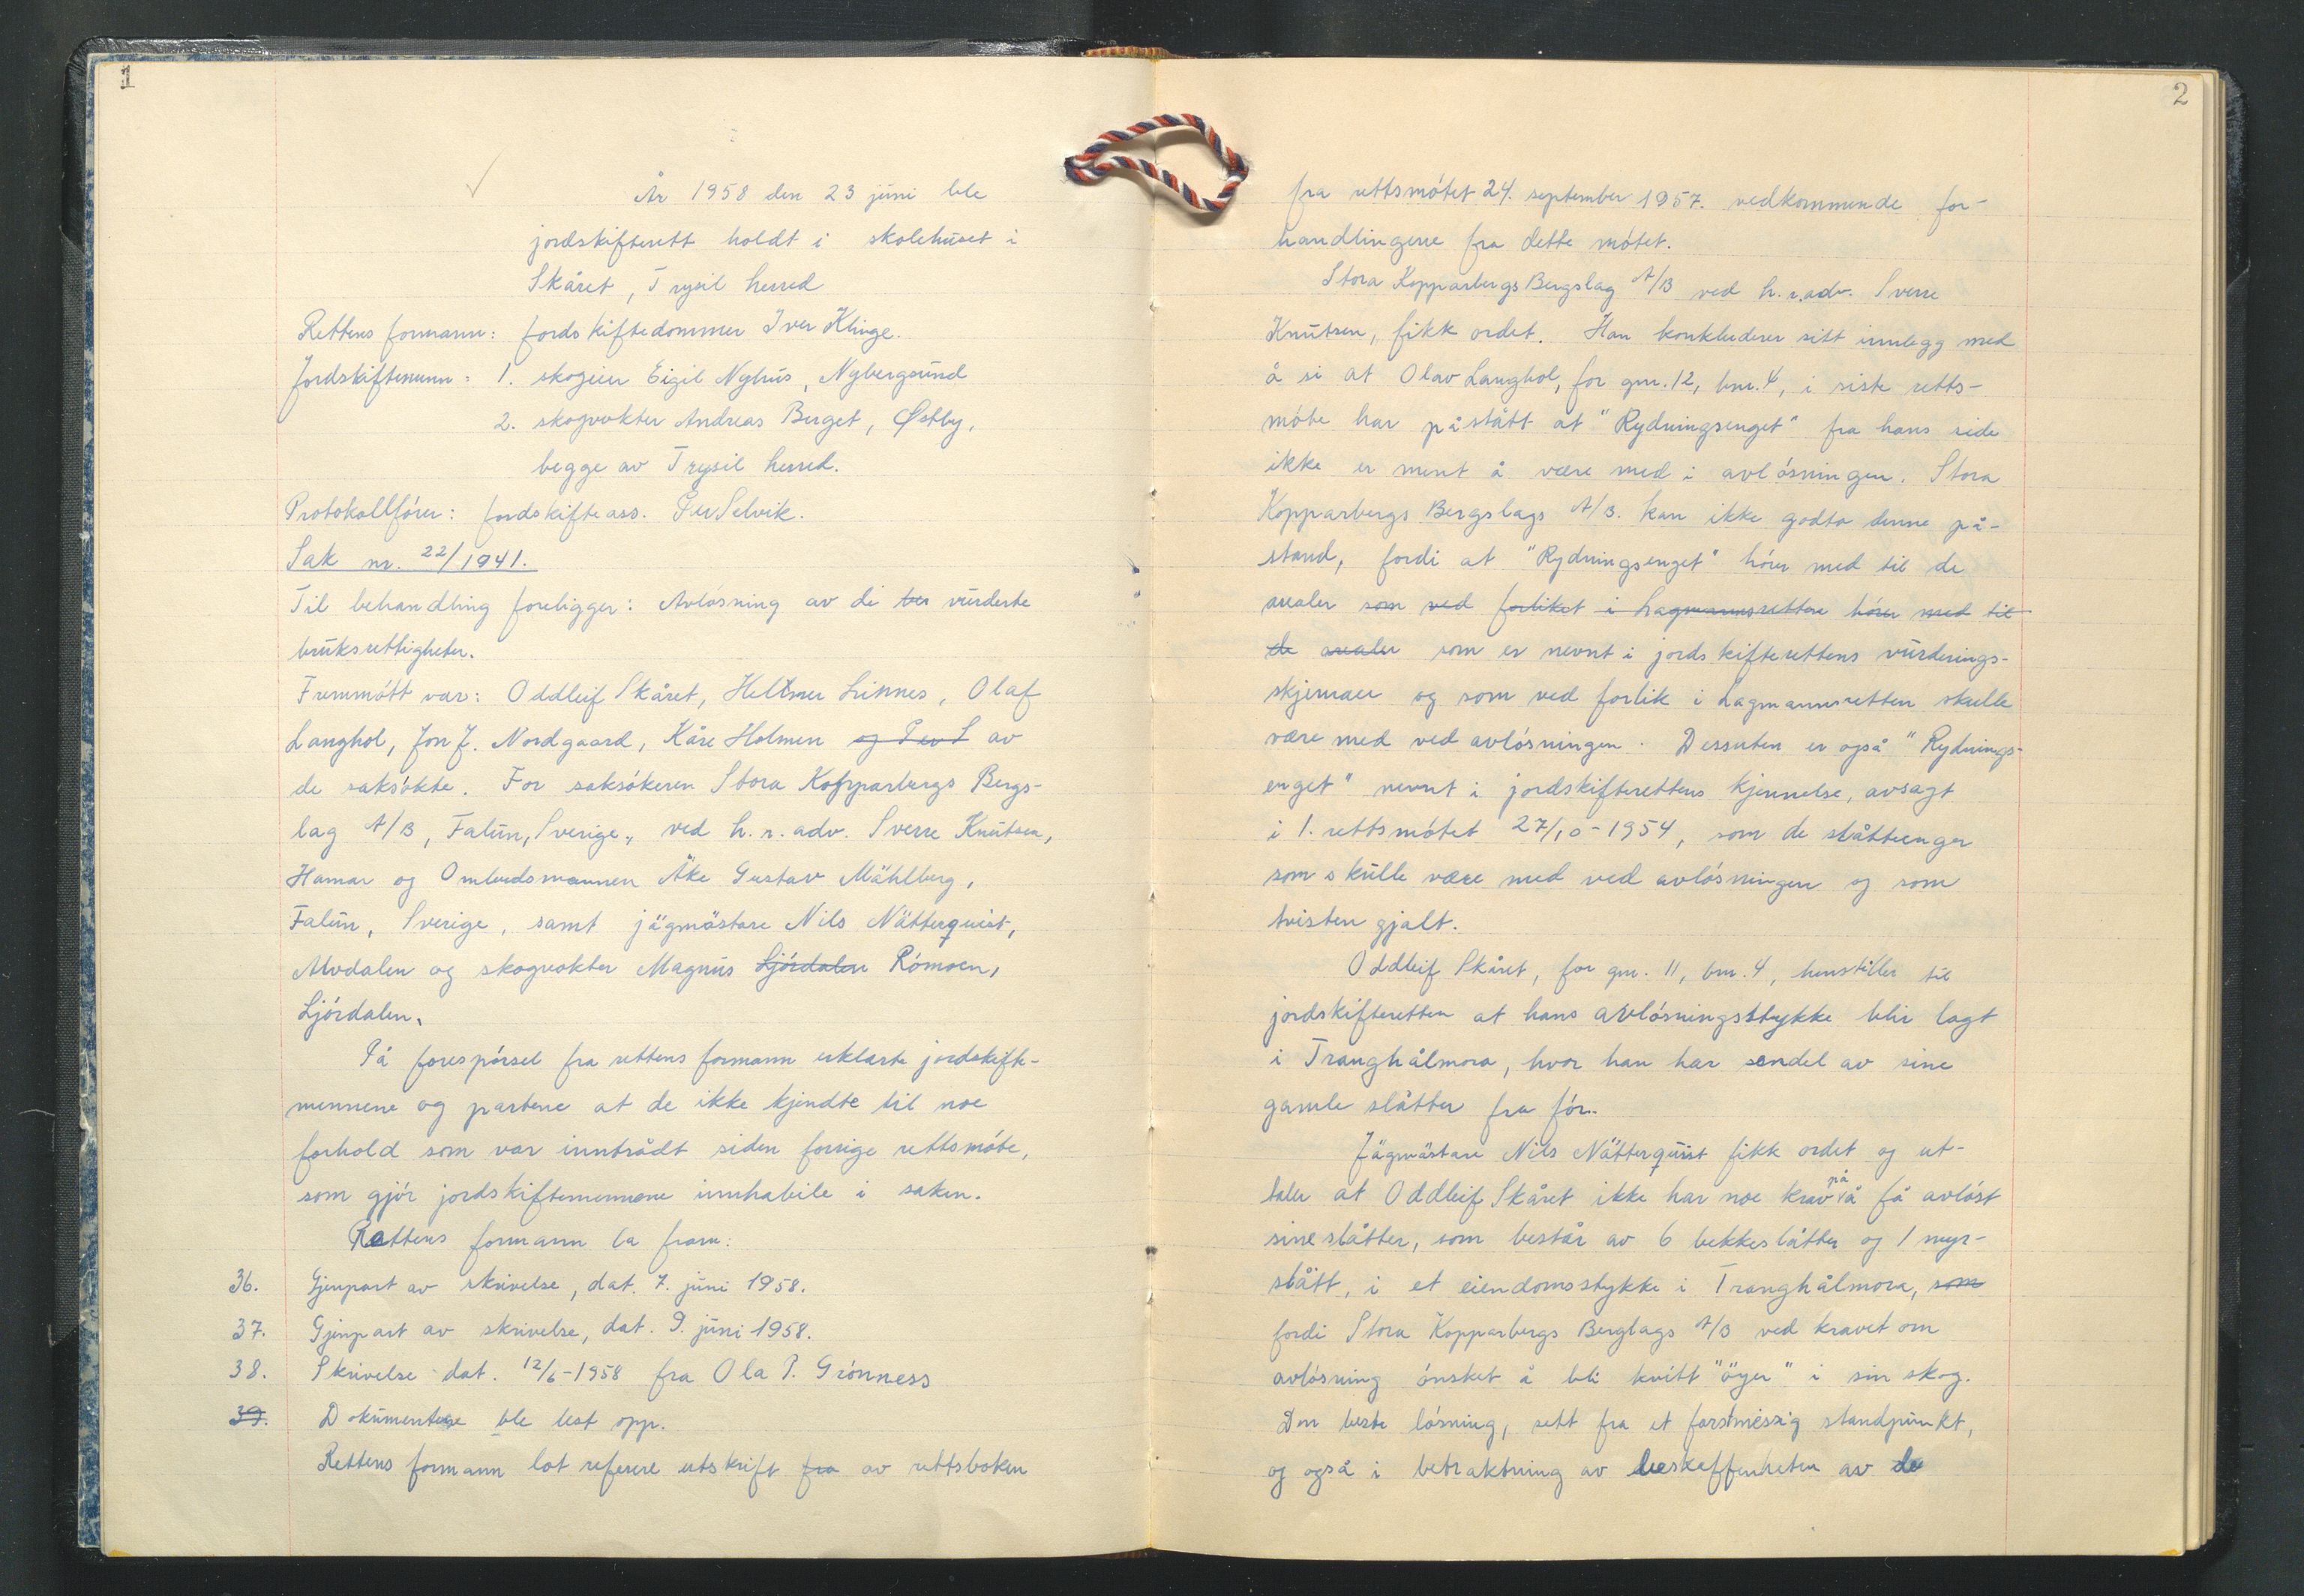 1
År 1958 den 23 juni ble
jordskifterett holdt i skolehuset i
Skåret, Trysil herred
Rettens formann: Jordskiftedommer Iver Klinge.
Jordskiftemenn: 1. skogeier Eigil Nyhus, Nybergsund
2. skogvokter Andreas Berget, Østby,
begge av Trysil herred.
Protokollfører: Jordskifteass. Per Selvik.
Sak nr. 22/1941.
Til behandling foreligger: Avløsning av de vurderte
bruksrettigheter.
Fremmøtt var: Oddleif Skåret, Helmer Linnes, Olaf
Langhol, Jon J. Nordgaard, Kåre Holmen og Per S av
de saksøkte. For saksøkeren Stora Kopparbergs Bergs-
lag A/B, Falun, Sverige, ved h.r.adv. Sverre Knutsen,
Hamar og Ombudsmannen Åke Gustav Mählberg,
Falun, Sverige, samt jägmästare Nils Nätterquist,
Älvdalen og skogvokter Magnus Ljørdalen Rømoen,
Ljørdalen.
På forespørsel fra rettens formann erklærte jordskifte-
mennene og partene at de ikke kjendte til noe
forhold som var inntrådt siden forrige rettsmøte,
som gjør jordskiftemennene innhabile i saken.
Rettens formann la fram:
36. Gjenpart av skrivelse, dat. 7. juni 1958.
37. Gjenpart av skrivelse, dat. 9. juni 1958.
38. Skrivelse dat. 12/6-1958 fra Ola P. Grønness
39. Dokumentene ble lest opp.
Rettens formann lot referere utskrift fra av rettsboken
2
fra rettsmøtet 24. september 1957. vedkommende for-
handlingene fra dette møtet.
Stora Kopparbergs Bergslag A/B ved h.r.adv. Sverre
Knutsen, fikk ordet. Han konkluderer sitt innlegg med
å si at Olav Langhol, for gnr. 12, bnr. 4, i siste retts-
møte har påstått at "Rydningsenget" fra hans side
ikke er ment å være med i avløsningen. Stora
Kopparbergs Bergslags A/B. kan ikke godta denne på-
stand, fordi at "Rydningsenget" hører med til de
arealer som ved forliket i Lagmannsretten hører med til
de arealer som er nevnt i jordskifterettens vurderings-
skjemaer og som ved forlik i Lagmannsretten skulle
være med ved avløsningen. Dessuten er også "Rydnings-
enget" nevnt i jordskifterettens kjennelse, avsagt
i 1. rettsmøtet 27/10-1954, som de slåttenger
som skulle være med ved avløsningen og som
tvisten gjalt.
Oddleif Skåret, for gnr. 11, bnr. 4, henstiller til
jordskifteretten at hans avløsningsstykke blir lagt
i Tranghålmora, hvor han har sendel av sine
gamle slåtter fra før.
Jägmästare Nils Nätterquist fikk ordet og ut-
taler at Oddleif Skåret ikke har noe krav på å få avløst
sine slåtter, som består av 6 bekkeslåtter og 1 myr-
slått, i et eiendomsstykke i Tranghålmora, som
fordi Stora Kopparbergs Berglags A/B ved kravet om
avløsning ønsket å bli kvitt "öyer" i sin skog.
Den beste løsning, sett fra et forstmessig standpunkt,
og også i betraktning av beskaffenheten av de